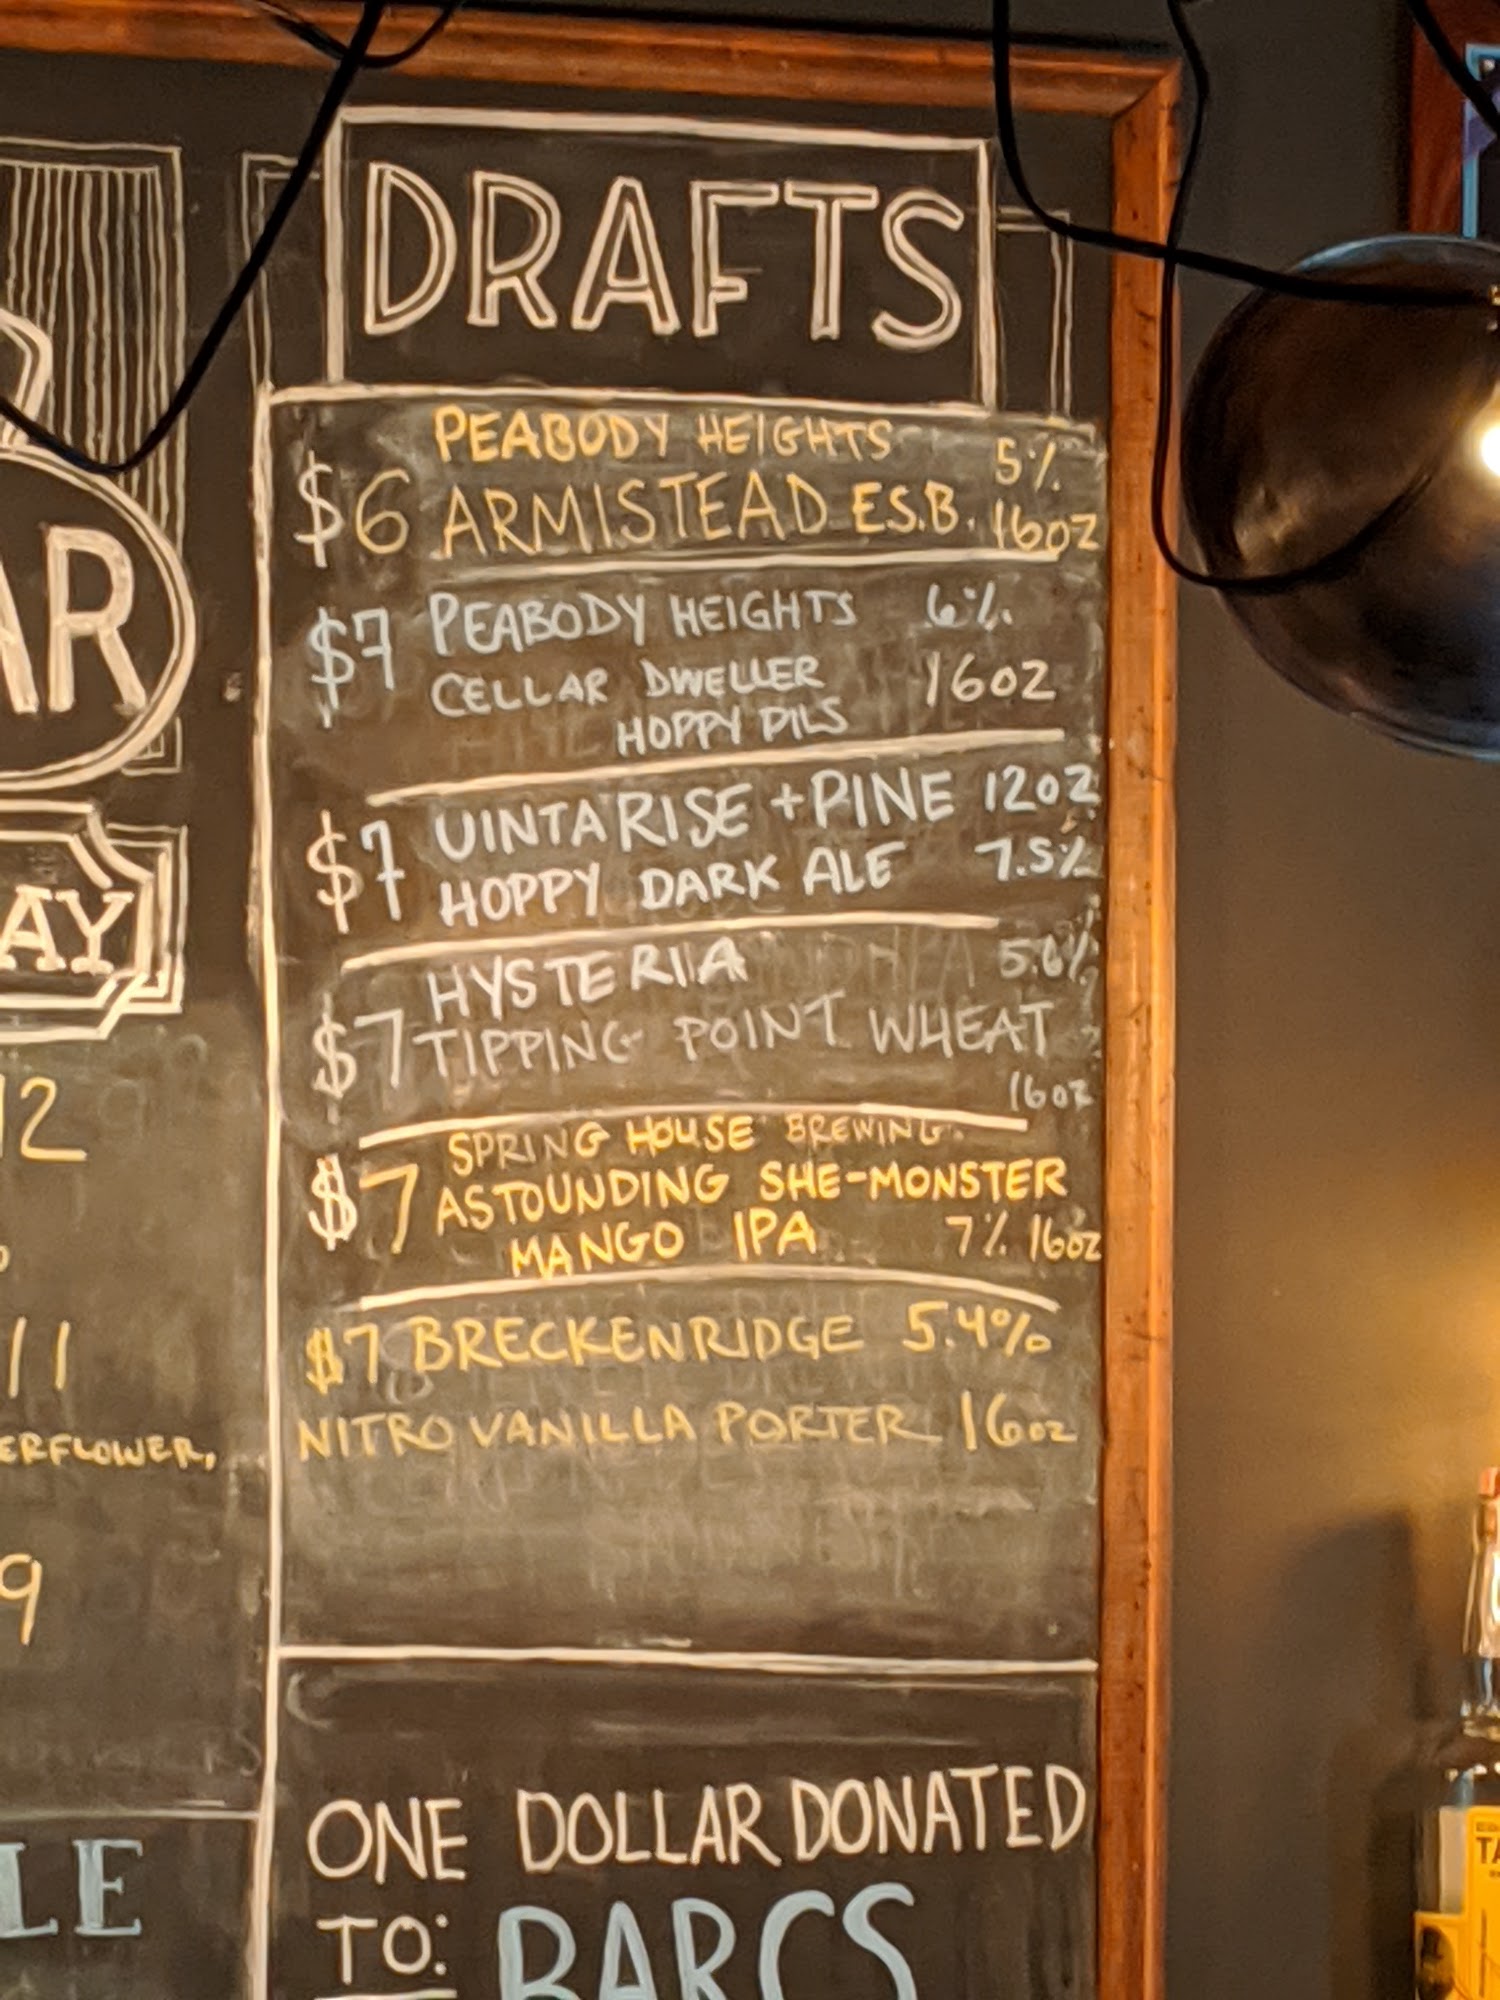 DRAFTS
$6 PEABODY HEIGHTS 5%
ARMISTEAD E.S.B. 16oz
$7 PEABODY HEIGHTS 6%
CELLAR DWELLER 16OZ
HOPPY PILS
$7 UINTA RISE + PINE 12OZ
HOPPY DARK ALE 7.5%
HYSTERIA
$7 TIPPING POINT WHEAT
16oz
SPRING HOUSE BREWING
$7 ASTOUNDING SHE-MONSTER
MANGO IPA 7% 16oz
$7 BRECKENRIDGE 5.4%
NITRO VANILLA PORTER 16oz
ONE DOLLAR DONATED
TO: BARCS
AR
AY
12
11
ERFLOWER,
9
LE
TA